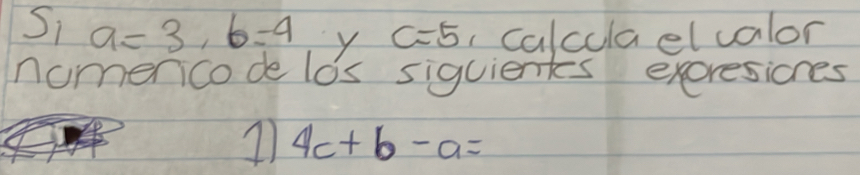 Si a=3, b=4 y c=5, calcula el valor
numerico de los siguientes expresiones
1) 4c+b-a=